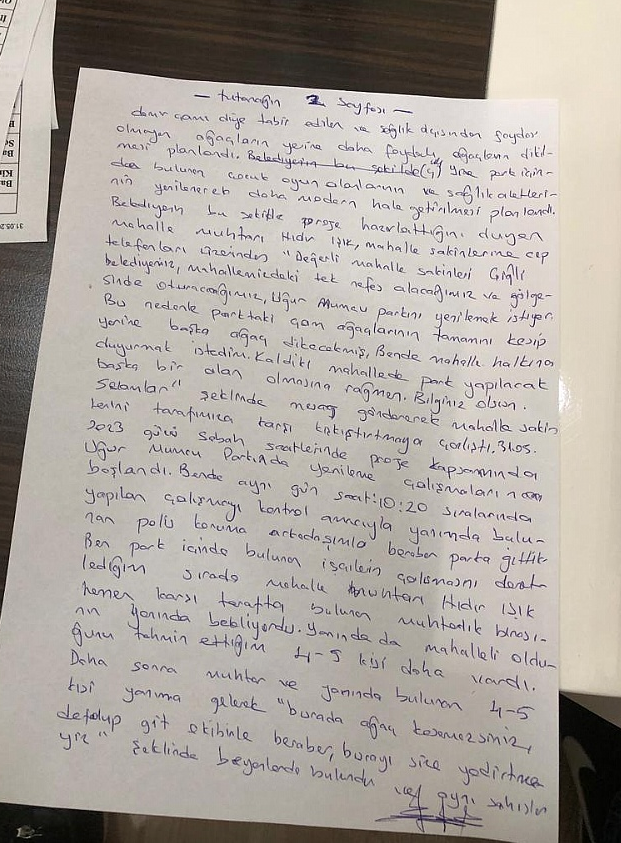 — tutanağın 2 sayfası —
danır çamı diğe tabir edilen ve sağlık açısından faydası
olmayan ağaçların yerine daha faydalı ağaçların dikil-
mesi planlandı. Belediyenin bu şekilde (ç) Yine park için-
de bulunan çocuk oyun alanlarının ve sağlık aletleri-
nin yenilenerek daha modern hale getirilmesi planlandı.
Belediyenin bu şekilde proje hazırlattığını duyan
mahalle muhtarı Hıdır Işık, mahalle sakinlerine cep
telefonları üzerinden "Değerli mahalle sakinleri Çiğli
belediyemiz, mahallemizdeki tek nefes alacağımız ve gölge-
sinde oturacağımız, Uğur Mumcu parkını yenilemek istiyor.
Bu nedenle parktaki çam ağaçlarının tamamını kesip
yerine başka ağaç dikecekmiş, Bende mahalle halkına
duyurmak istedim. Kaldıki mahallede park yapılacak
başka bir alan olmasına rağmen. Bilginiz olsun.
Selamlar" şeklinde mesaj göndererek mahalle sakin
lerini tarafımıza karşı kışkırtmaya çalıştı. 31.05.
2023 günü sabah saatlerinde proje kapsamında
Uğur Mumcu Parkında yenileme çalışmaları
başlandı. Bende aynı gün saat: 10:20 sıralarında
yapılan çalışmayı kontrol amacıyla yanımda bulu-
nan polis koruma arkadaşımla beraber parka gittik
Ben park içinde bulunan işçilerin çalışmasını denet-
lediğim sırada mahalle muhtarı Hıdır IŞIK
hemen karşı tarafta bulunan muhtarlık binası-
nın yanında bekliyordu. Yanında da mahalleli oldu-
ğunu tahmin ettiğim 4-5 kişi daha vardı.
Daha sonra muhtar ve yanında bulunan 4-5
kişi yanıma gelerek "burada ağaç kesemezsiniz,
defolup git ekibinle beraber, burayı size yedirtme
yiz" şeklinde beyanlarda bulundu ve aynı şahıslar
31.05.2